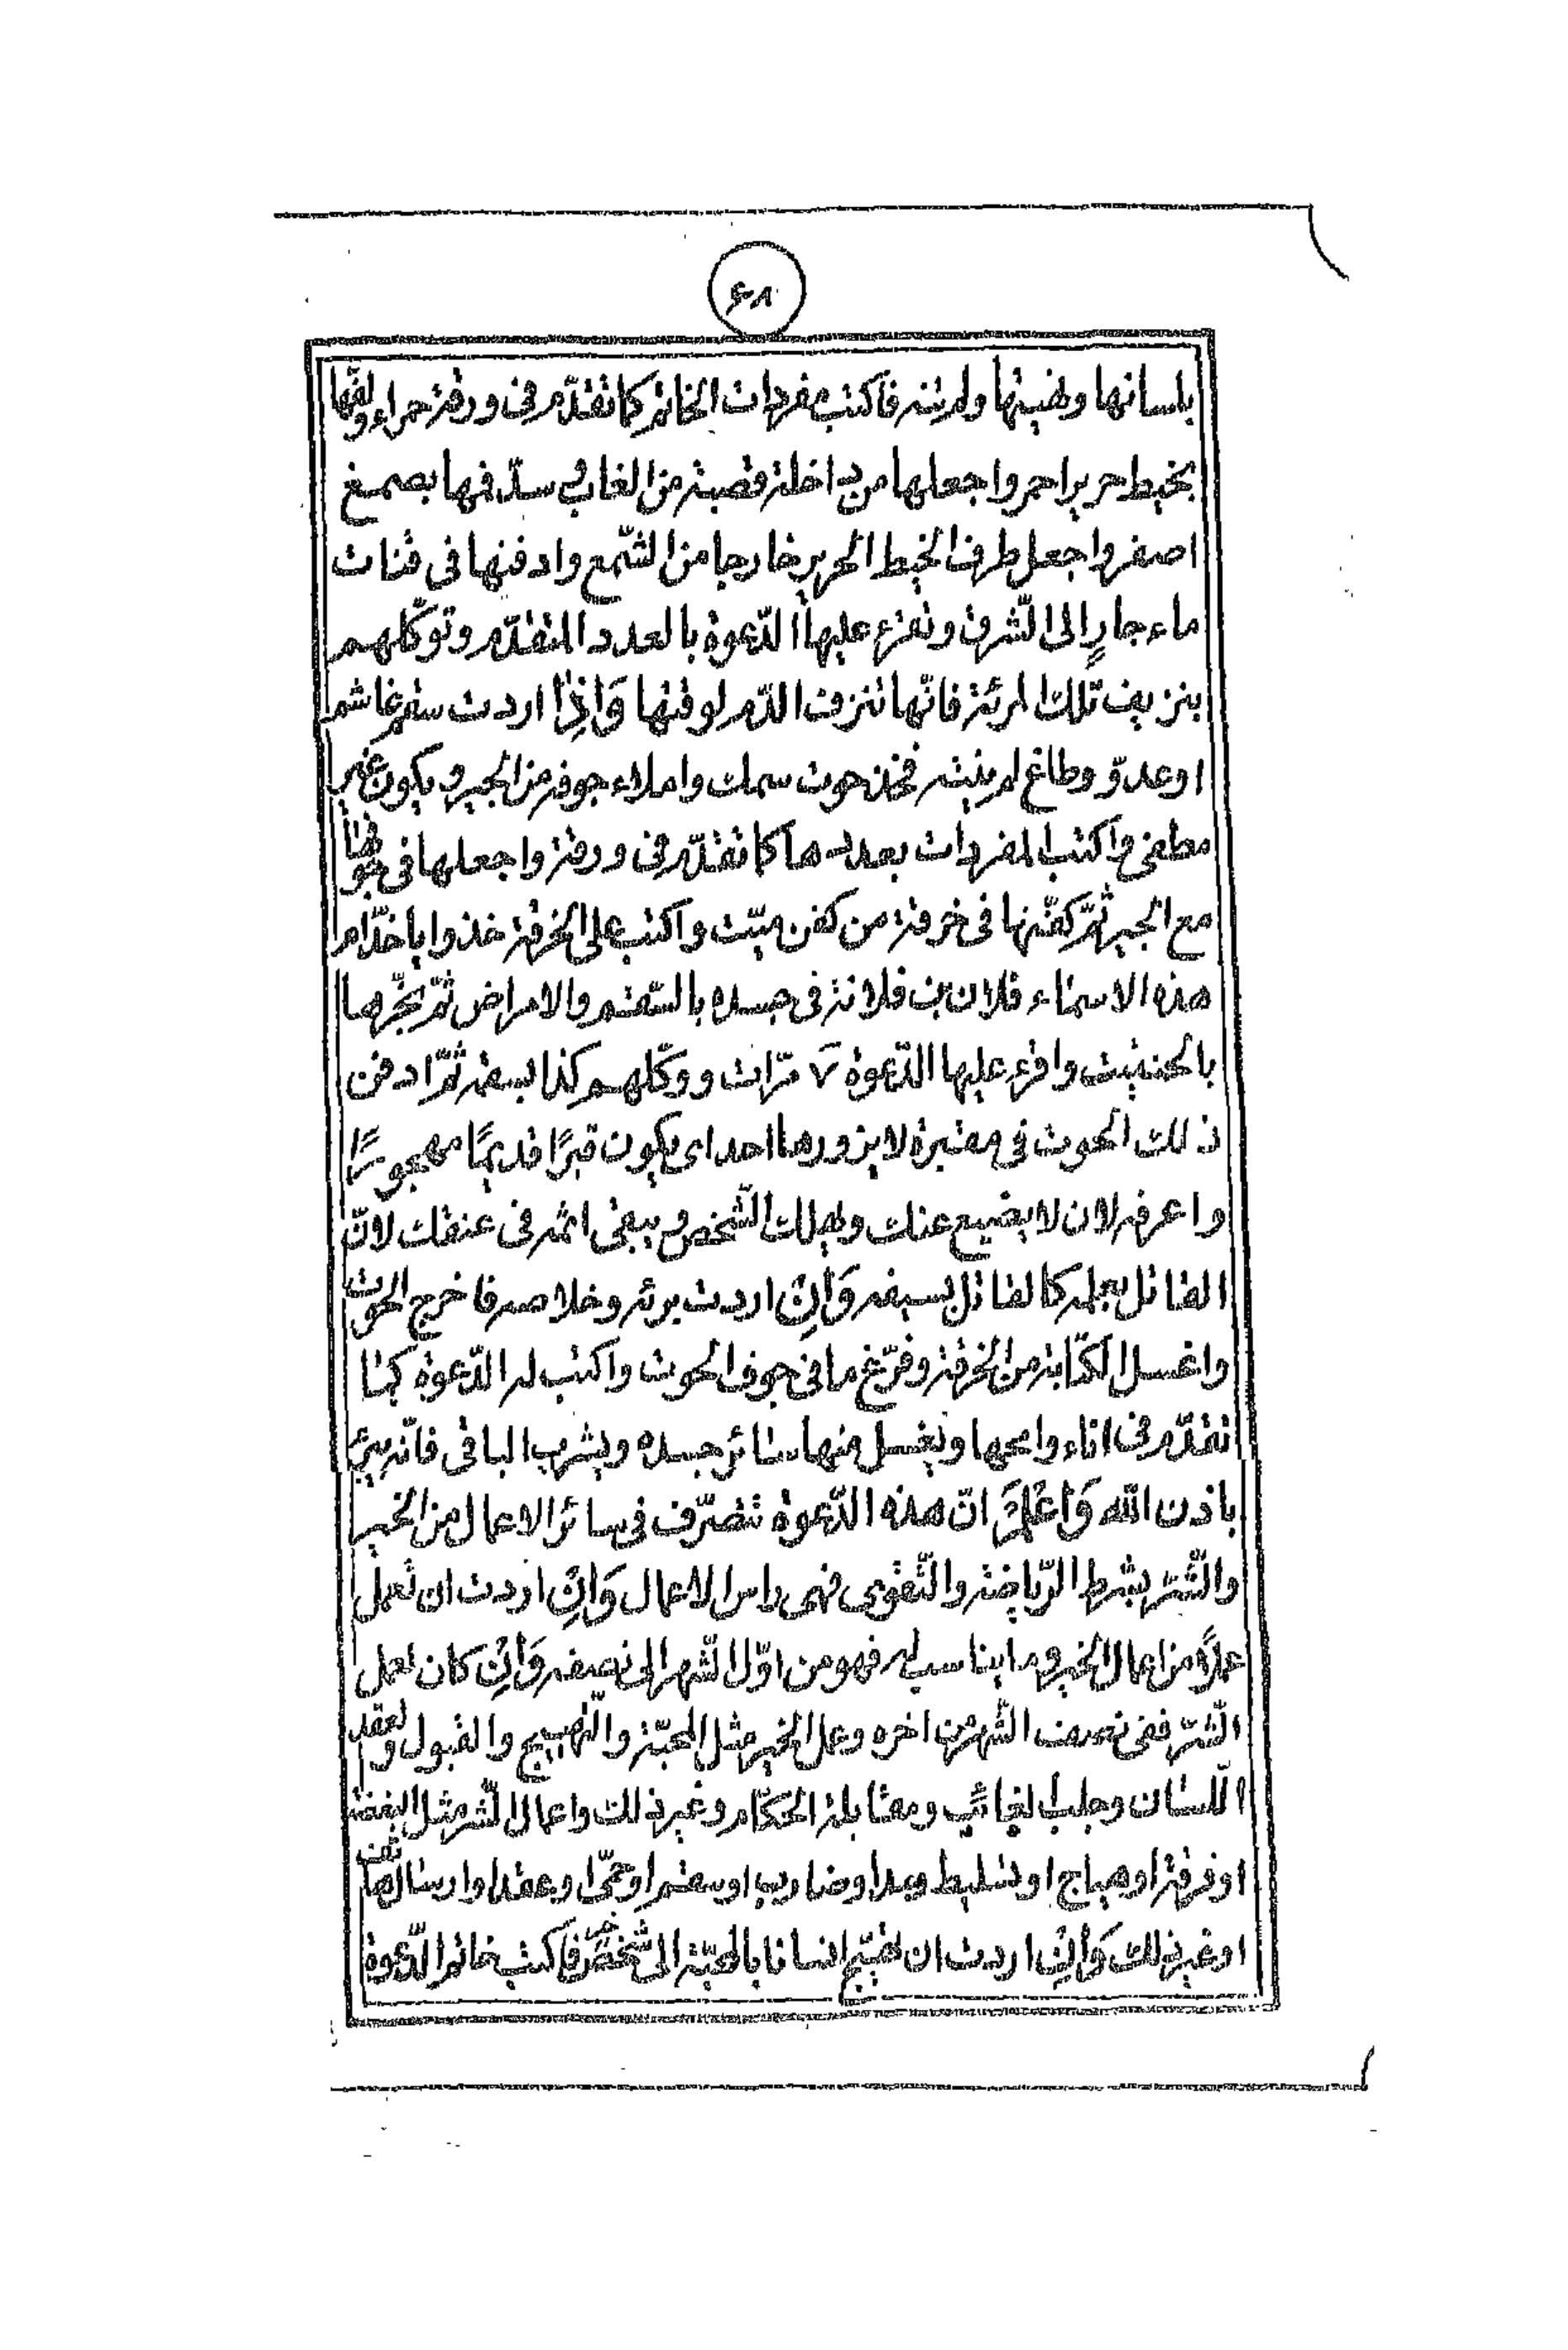 ٤٨
بلسانها وغيبتها ولم تنته فاكتب مفردات الخاتم كما تقدّم فى ورقة حمراء ولفّها
بخيط حرير احمر واجعلها من داخلة قصبة من الغاب وسدّ فمها بصمغ
اصفر واجعل طرف الخيط الحرير خارجا من الشّمع وادفنها فى قنات
ماء جارٍ الى الشّرق وتقرء عليها الدّعوة بالعدد المتقدّم وتوكّلهم
بنزيف تلك المرئة فانّها تنزف الدّم لوقتها وَاِذَا اردت سقم غاشم
او عدوّ وطاغ لم ينته فخذ حوت سمك واملاء جوفه من الجير ويكون غير
مطفى واكتب المفردات بعددها كما تقدّم فى ورقة واجعلها فى جوفها
مع الجير ثمّ كفّنها فى خرقة من كفن ميّت واكتب على الخرقة خذوا يا خدّام
هذه الاسماء فلان بن فلانة فى جسده بالسّقم والامراض ثمّ بخّرها
بالحنتيت واقرء عليها الدّعوة ٧ مرّات ووكّلهم كذا بسقمه ثمّ ادفن
ذلك الحوت فى مقبرة لا يزورها احد اى يكون قبرًا قديمًا مهجورًا
واعرفه لان لا يضيع عنك ويهلك الشّخص ويبقى اثمه فى عنقك لانّ
القاتل بعلمه كالقاتل بسيفه وَاِنْ اردت برئه وخلاصه فاخرج الحوت
واغسل الكتابة من الخرقة وفرّغ ما فى جوف الحوت واكتب له الدّعوة كما
تقدّم فى اناء وامحها ويغسل منها سائر جسده ويشرب الباقى فانّه يبرئ
باذن الله وَاعْلَمْ انّ هذه الدّعوة تتصرّف فى سائر الاعمال من الخير
والشّرّ بشرط الرّياضة والتّقوى فهى راس الاعمال وَاِنْ اردت ان تعمل
عملاً من اعمال الخير وما يناسب له فهو من اوّل الشّهر الى نصيفه وَاِنْ كان لعمل
الشّرّ ففى نصف الشّهر من اخره وعمل الخير مثل المحبّة والتّهييج والقبول ولعقد
اللّسان وجلب الغائب ومقابلة الحكّام وغير ذلك واعمال الشّر مثل البغضة
او فرقة او هياج او تسليط عبد او ضارب او سقم او حمّى او عقد او ارسال هاتف
او غير ذلك وَاِنْ اردت ان تهيّج انسانا بالمحبّة الى شخص فاكتب خاتم الدّعوة